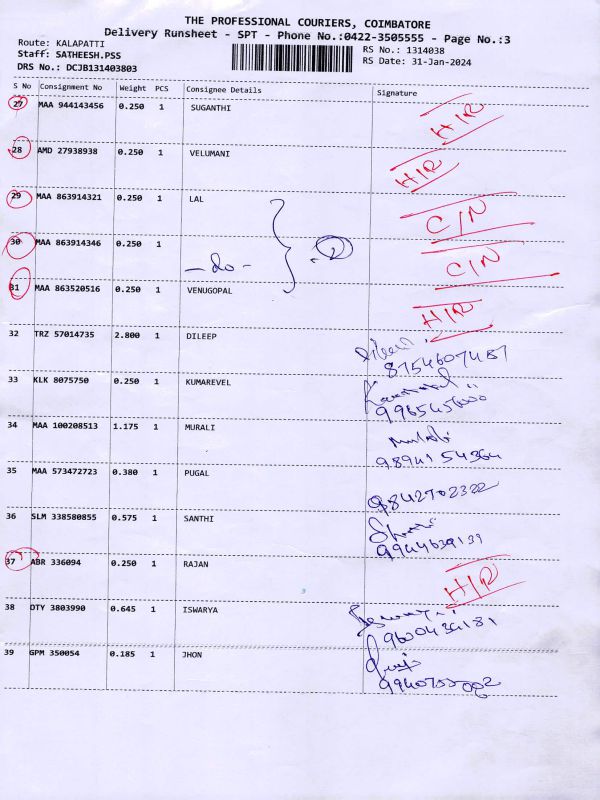 THE PROFESSIONAL COURIERS, COIMBATORE
Delivery Runsheet - SPT - Phone No.:0422-3505555 - Page No.:3
Route: KALAPATTI
RS No.: 1314038
Staff: SATHEESH.PSS
RS Date: 31-Jan-2024
DRS No.: DCJB131403803
S No Consignment No Weight PCS Consignee Details Signature
27 MAA 944143456 0.250 1 SUGANTHI H/R
28 AMD 27938938 0.250 1 VELUMANI H/R
29 MAA 863914321 0.250 1 LAL C/N
30 MAA 863914346 0.250 1 -do- 2 C/N
31 MAA 863520516 0.250 1 VENUGOPAL H/R
32 TRZ 57014735 2.800 1 DILEEP Dileep
8754607487
33 KLK 8075750 0.250 1 KUMAREVEL
34 MAA 100208513 1.175 1 MURALI Murali
9894154364
35 MAA 573472723 0.380 1 PUGAL 9842702322
36 SLM 338580855 0.575 1 SANTHI
9944639139
37 ABR 336094 0.250 1 RAJAN H/R
38 OTY 3803990 0.645 1 ISWARYA
9600434181
39 GPM 350054 0.185 1 JHON